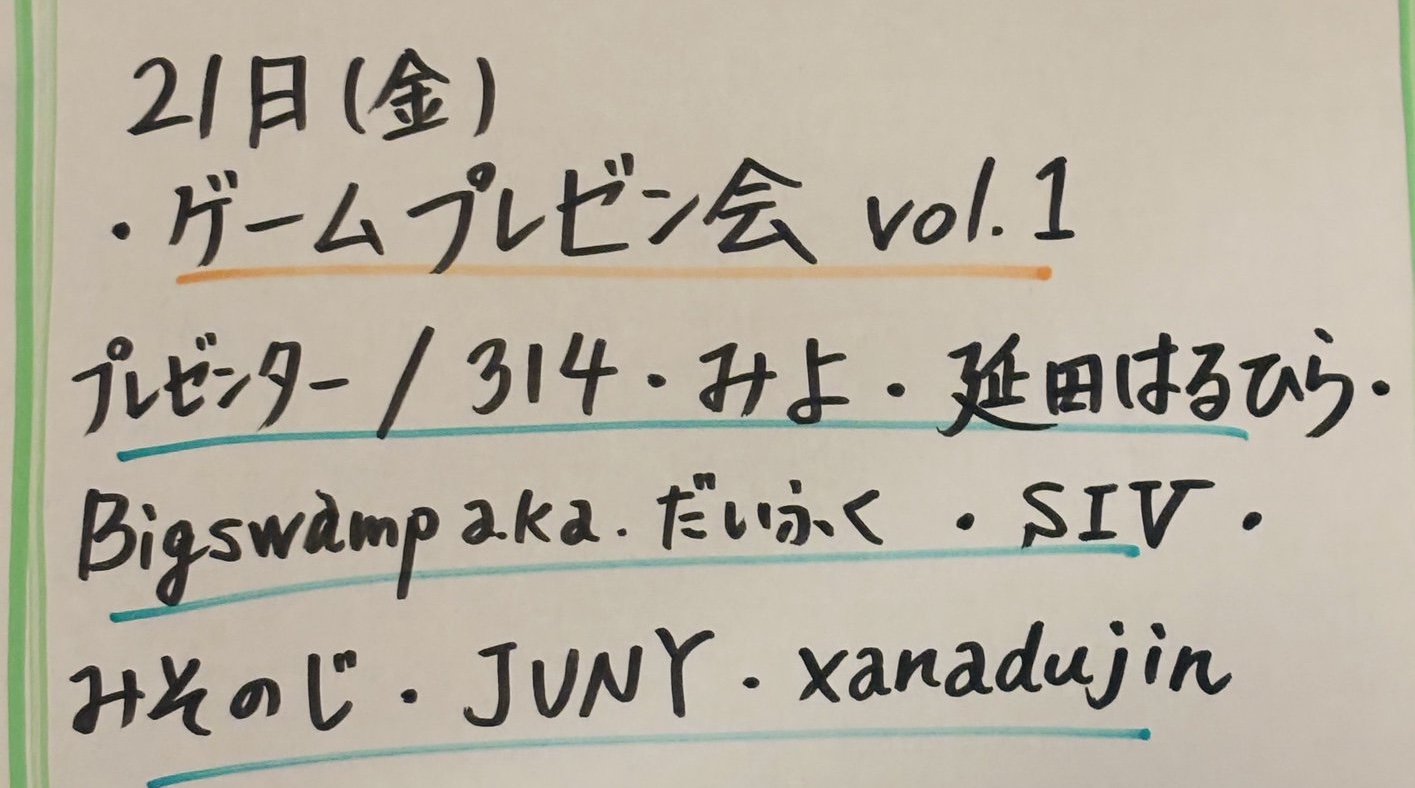 21日(金)
・ゲームプレゼン会 vol.1
プレゼンター/314・みよ・延田はるひら・
Bigswamp aka.だいふく・SIV・
みそのじ・JUNY・xanadujin